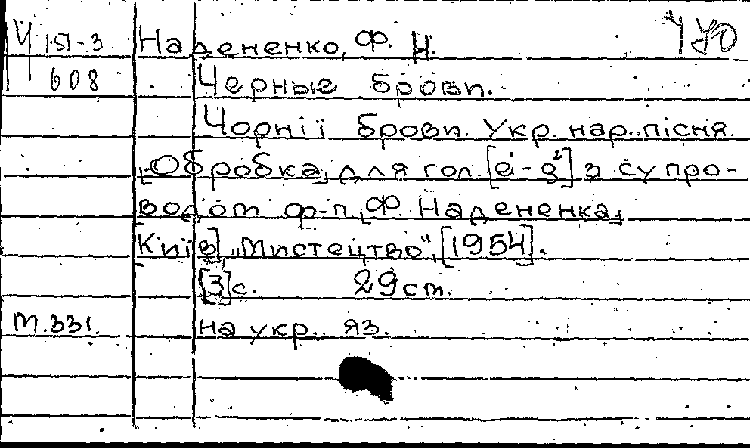 М 151-3 Надененко, Ф. Н.
608 Черные брови.
Чорнії брови. Укр. нар. пісня
Обробка для гол. [e¹-g²] з супро-
водом ф-п. Ф. Надененка,
Київ] "Мистецтво", [1954].
[3]с. 29 cm.
М.331. на укр. яз.